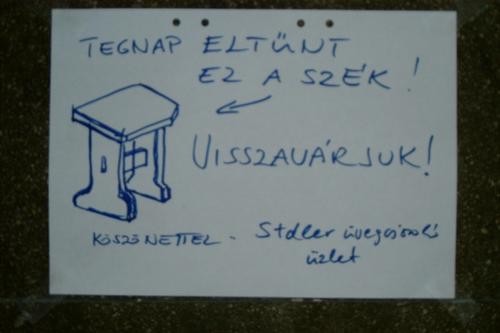 TEGNAP ELTŰNT
EZ A SZÉK!
VISSZAVÁRJUK!
KÖSZÖNETTEL - Stdler üvegcsiszoló
üzlet